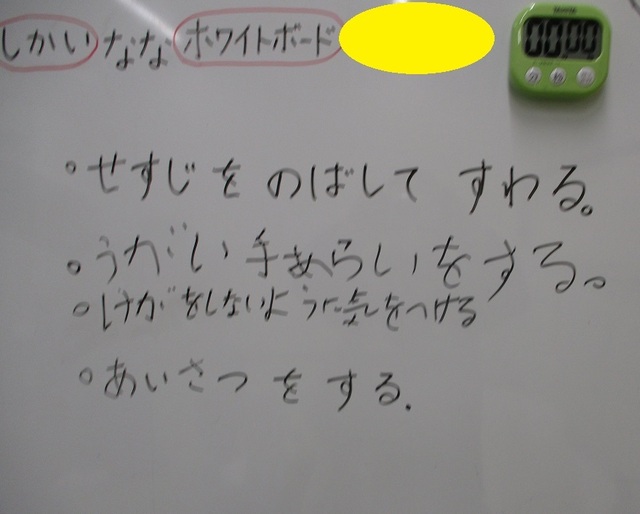 しかい なな ホワイトボード
00:00
・せすじをのばしてすわる。
・うがい手あらいをする。
・けがをしないように気をつける
・あいさつをする.